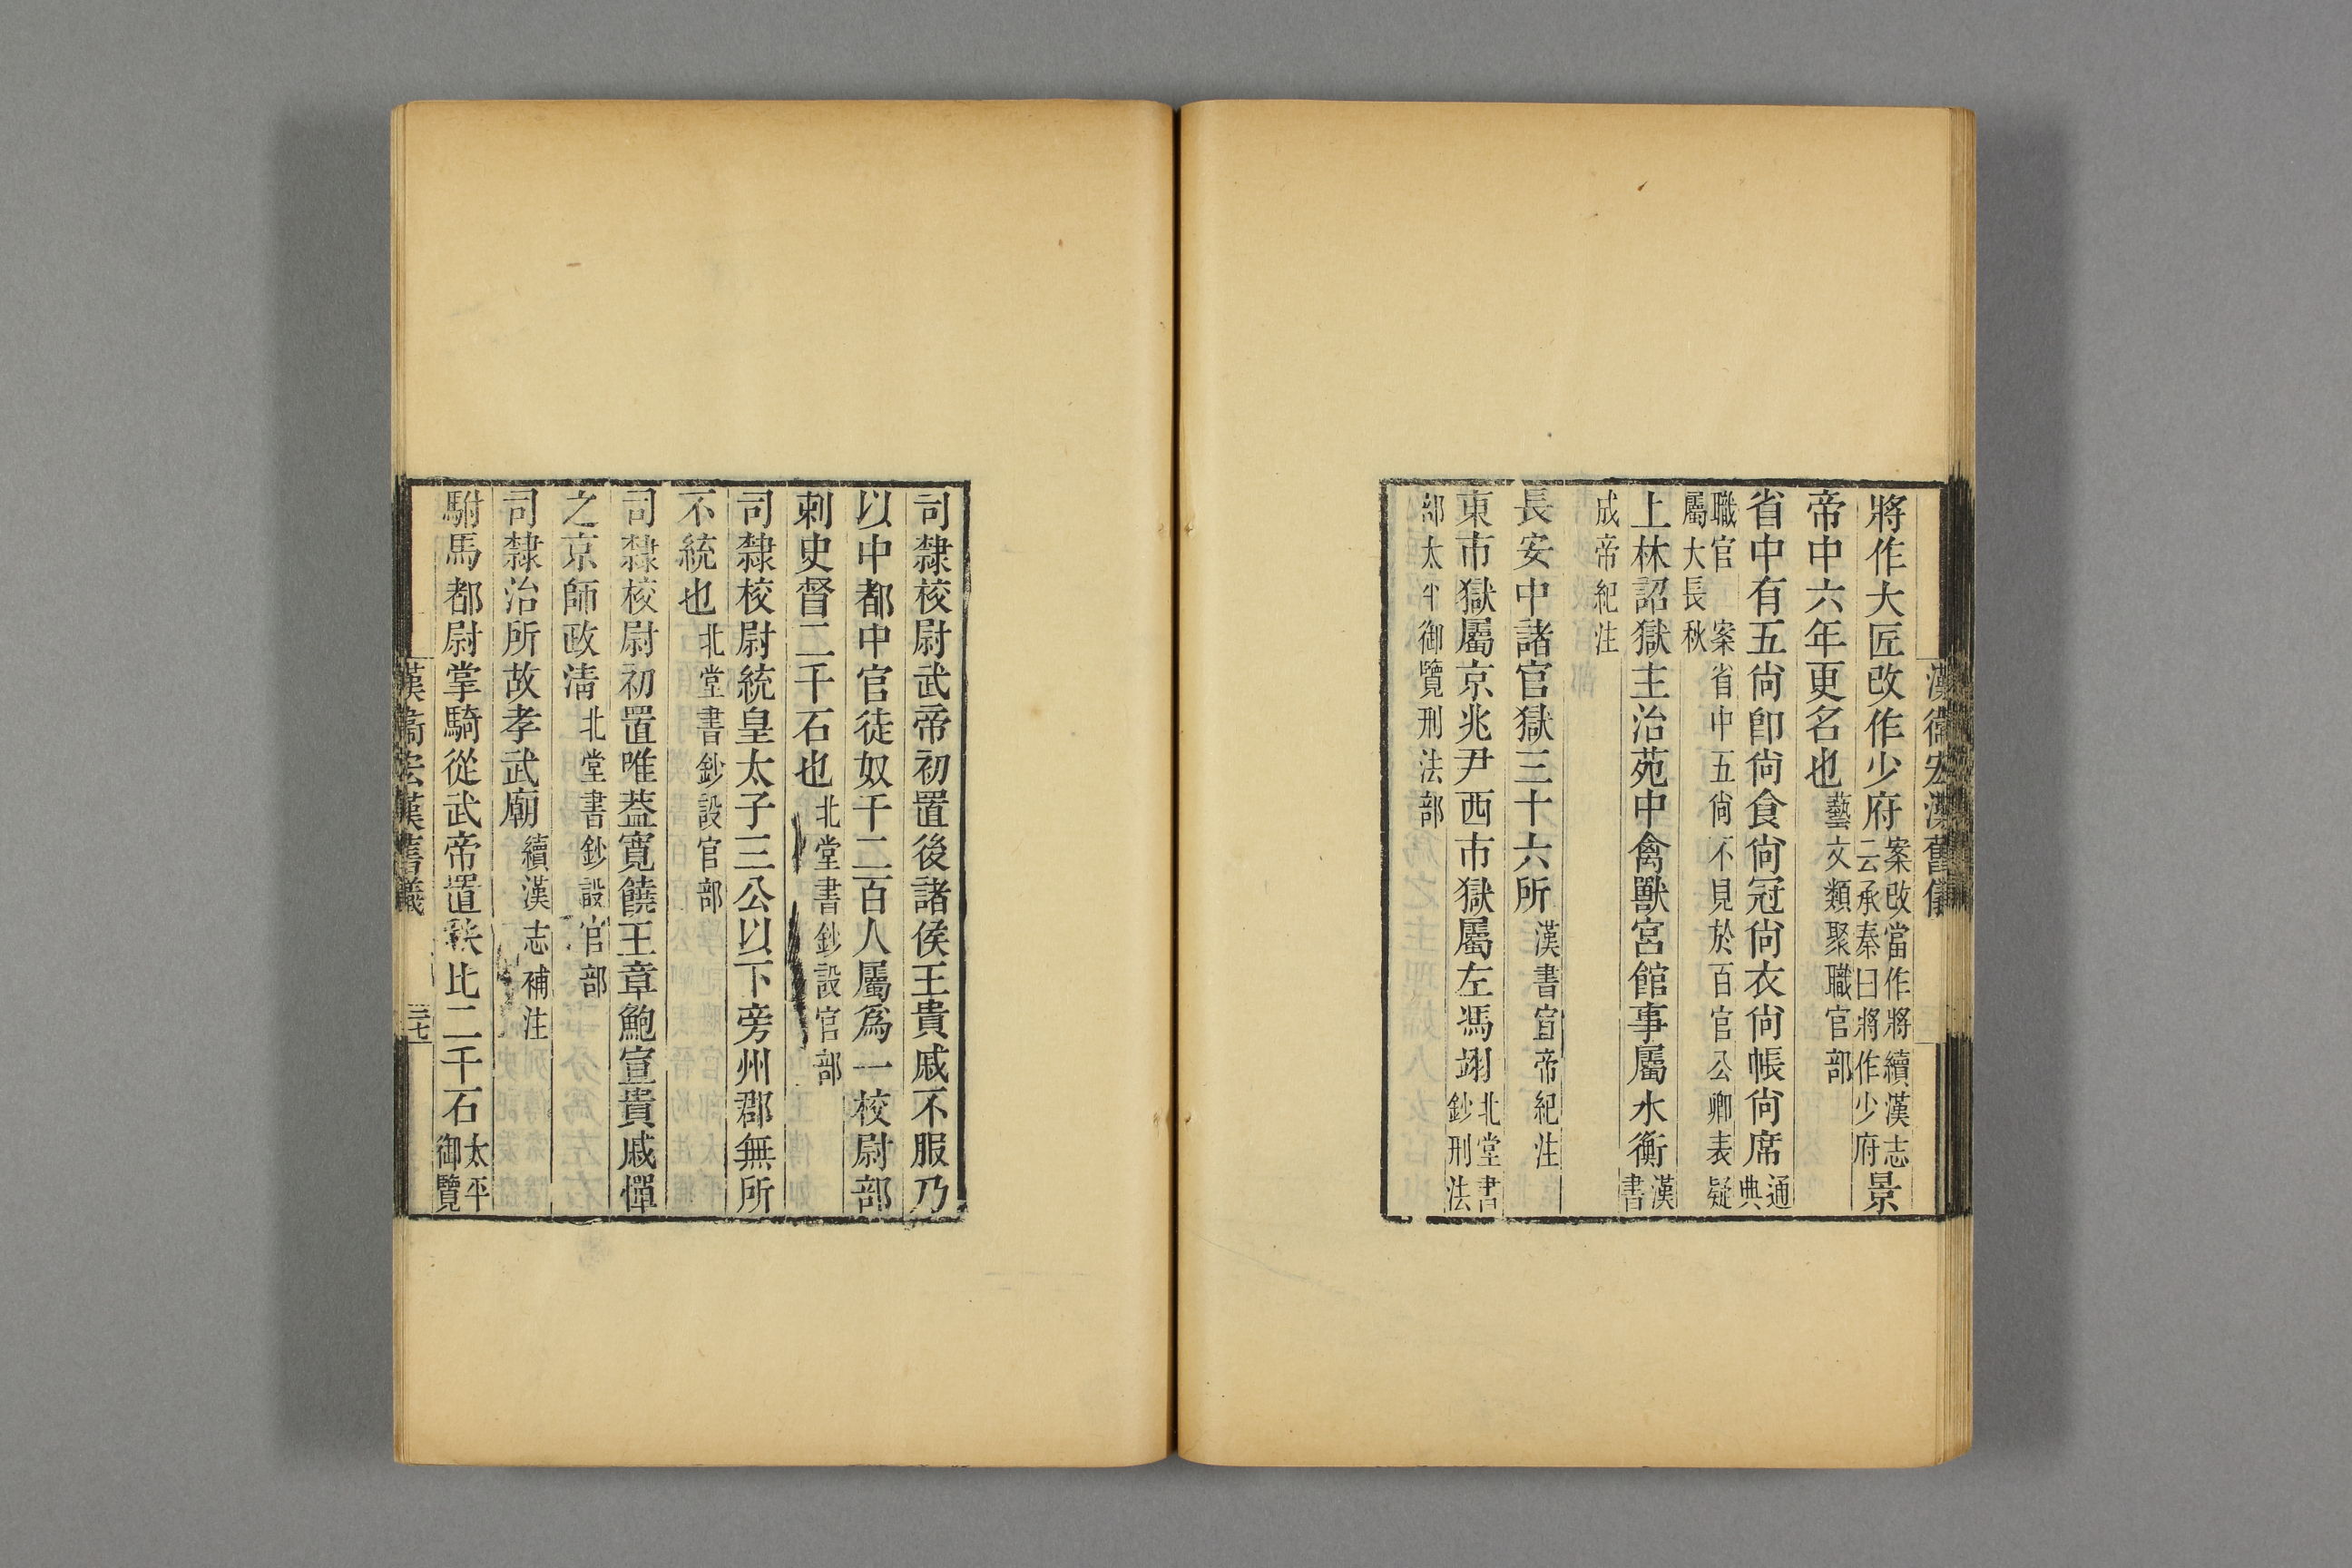 漢衛宏漢舊儀
將作大匠改作少府案改當作將續漢志云承秦曰將作少府景
帝中六年更名也藝文類聚職官部
省中有五尙卽尙食尙冠尙衣尙帳尙席通典
職官 案省中五尙不見於百官公卿表疑屬大長秋
上林詔獄主治苑中禽獸宮館事屬水衡漢書
成帝紀注
長安中諸官獄三十六所漢書宣帝紀注
東市獄屬京兆尹西市獄屬左馮翊北堂書鈔刑法
部太平御覽刑法部
司隸校尉武帝初置後諸侯王貴戚不服乃
以中都中官徒奴千二百人屬爲一校尉部
刺史督二千石也北堂書鈔設官部
司隸校尉統皇太子三公以下旁州郡無所
不統也北堂書鈔設官部
司隸校尉初置唯葢寬饒王章鮑宣貴戚憚
之京師政清北堂書鈔設官部
司隸治所故孝武廟續漢志補注
駙馬都尉掌騎從武帝置秩比二千石太平御覽
漢衛宏漢舊儀
三七